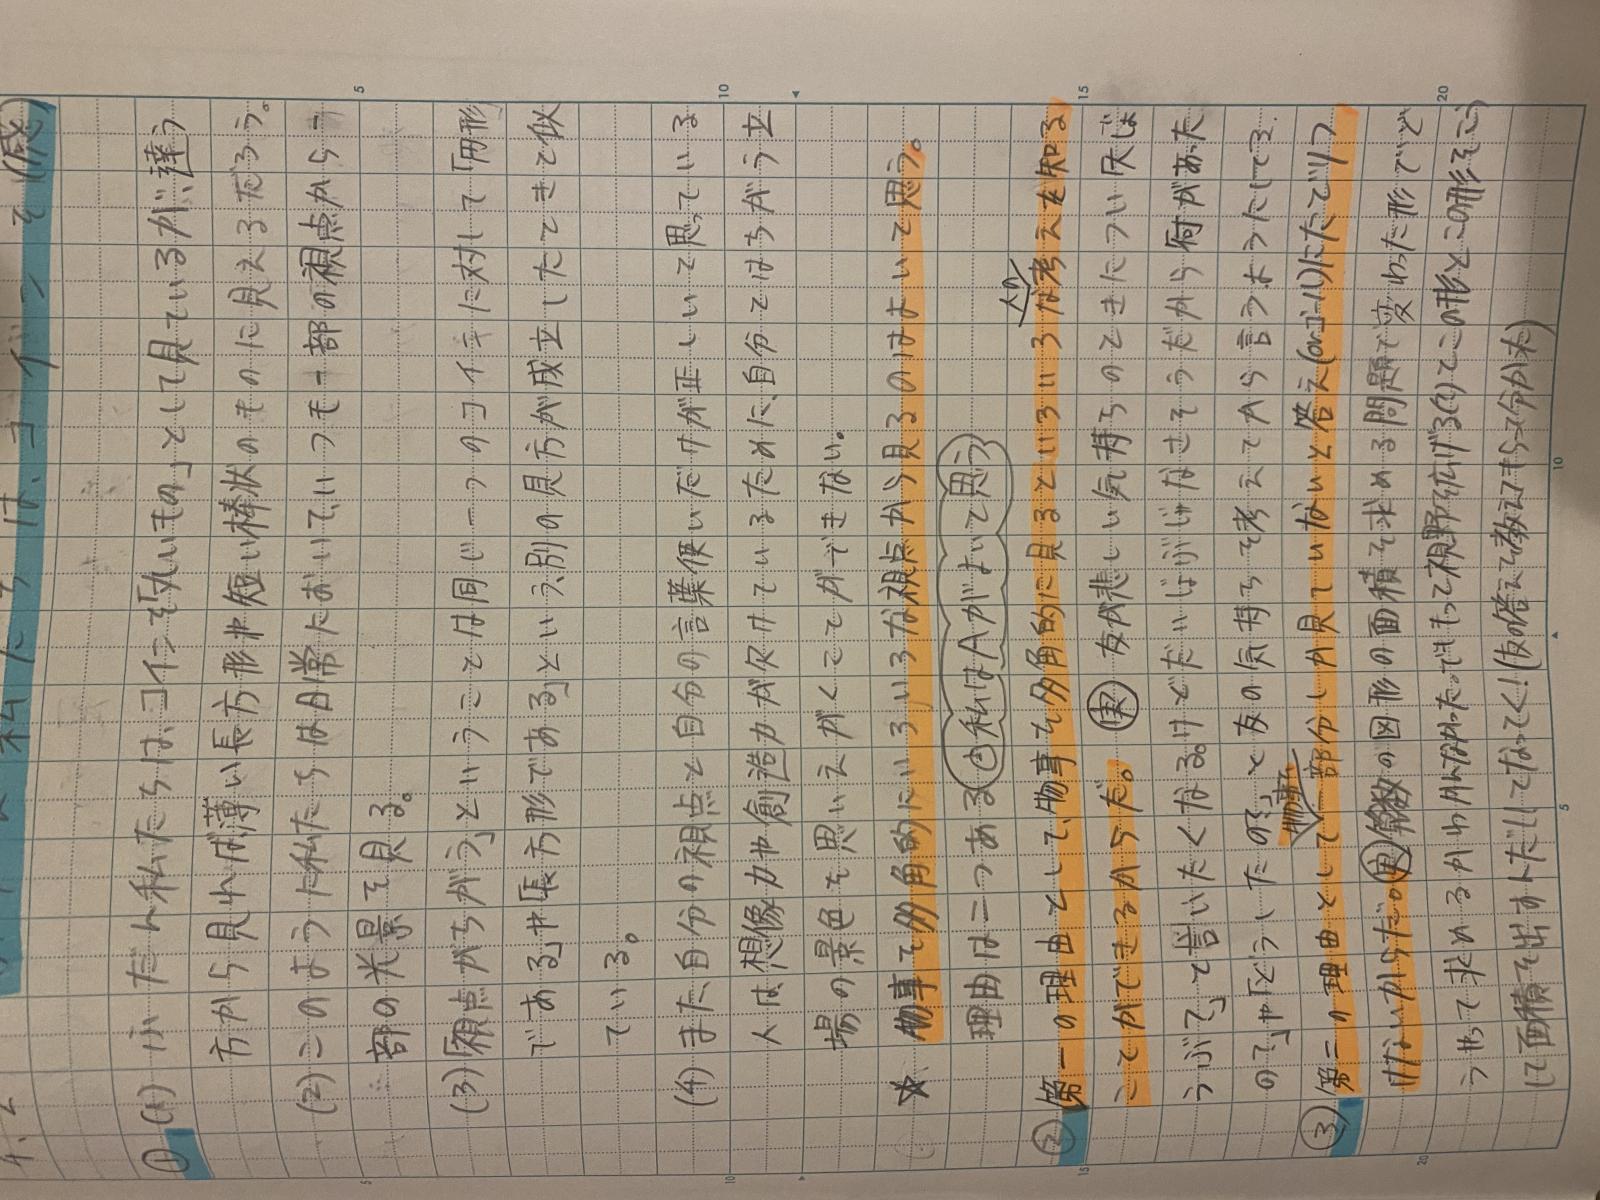 私たちは、コインを(仮)
① (1) ふだん私たちは、コインを「丸いもの」として見ているが、違う
方から見れば、薄い長方形や短い棒状のものに見えるだろう。
(2) このように私たちは日常においていつも一部の視点から一
部の光景を見る。
(3)「視点がちがう」ということは同じ一つのコインに対して「円形
である」や「長方形である」という、別の見方が成立したときと似
ている。
(4) また、自分の視点と自分の言葉使いだけが正しいと思っている
人は想像力や創造力が欠けているために、自分とはちがう立
場の景色を思いえがくことができない。
☆ 物事を多角的にいろいろな視点から見るのはよいと思う。
理由は二つある ⊕私はAがよいと思う
② 第一の理由として、物事を多角的に見るといろいろな人の考えを知る
ことができるからだ。 実 友が悲しい気持ちのときについ「大じょ
うぶ?」と言いたくなる。けどだいじょうぶじゃなさそうだから「何があった
の?」や「どうしたの?」と友の気持ちを考えてから言うようにしてる.
③ 第二の理由として物事、一部分しか見ていないと答え(orゴール)にたどりつ
けないからだ。実 算数の図形の面積を求める問題で変わった形で「ど
うやって求めるかわかんなかったでも」って視野を広げる(り)てこの形とこの形をひ
いて面積を出すんだ!ってなってく!(友の答えで教えてもらって分かった)